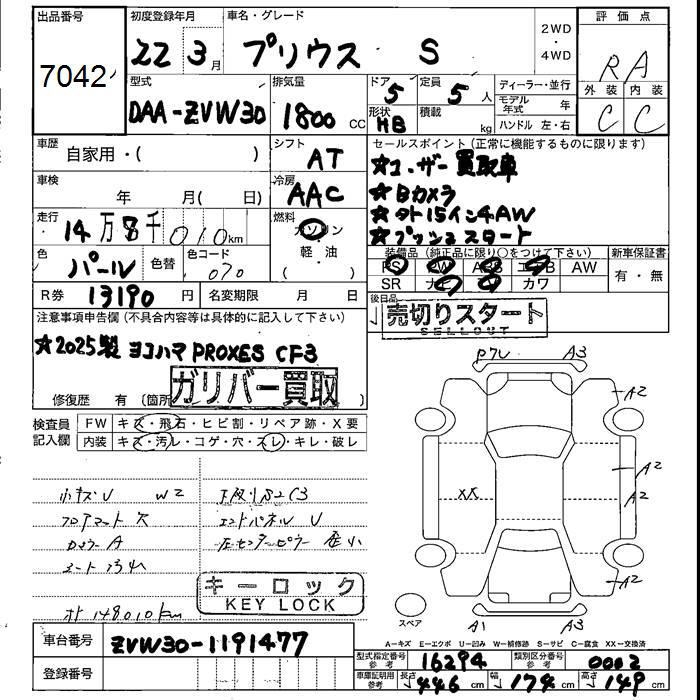 出品番号
7042
初度登録年月
22 3月
車名・グレード
プリウス S
2WD
・
4WD
評価点
RA
外装 内装
C C
型式
DAA-ZVW30
排気量
1800 CC
ドア 5
形状 HB
定員 5人
積載 kg
ディーラー・並行
モデル年式 年
ハンドル 左・右
車歴
自家用・( )
シフト
AT
セールスポイント(正常に機能するものに限ります)
★ユーザー買取車
★Bカメラ
★外15インチAW
★プッシュスタート
車検
年 月( 日)
冷房
AAC
走行
14万8千010km
燃料
ガソリン
・
軽・油
( )
色
パール
色替
色コード
070
装備品(純正品に限り〇をつけて下さい)
PS PW ABS エアB AW
SR ナビ カワ
新車保証書
有・無
R券 13190円
名変期限 月 日
後日品
売切りスタート
SELLOUT
注意事項申告欄(不具合内容等は具体的に記入して下さい)
★2025製 ヨコハマ PROXES CF3
ガリバー買取
修復歴 有(箇所
検査員記入欄
FW キズ・飛石・ヒビ割・リペア跡・X要
内装 キズ・汚レ・コゲ・穴・スレ・キレ・破レ
小キズU W2
フロアマット欠
A
シート汚れ
エンドパネル U
左センターピラー
キーロック
KEY LOCK
148010km
A3
A2
A2
A2
XX
A2
A1
A3
スペア
A=キズ E=エクボ U=凹み W=補修跡 S=サビ C=腐食 XX=交換済
車台番号
ZVW30-1191477
登録番号
型式指定番号 参考
16294
類別区分番号 参考
0002
車庫証明用 参考
長さ 446cm
幅 174cm
高さ 149cm